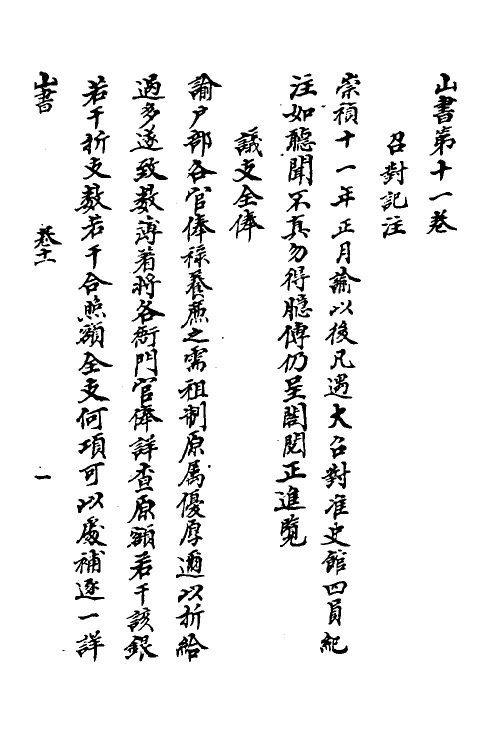 山書第十一卷
召對記注
崇禎十一年正月諭以後凡遇大召對准史館四員紀
注如聽聞不真勿得臆傳仍呈閣閱正進覽
議支全俸
諭户部各官俸祿養廉之需祖制原属優厚邇以折給
過多遂致数薄着將各衙門官俸詳查原額若干該銀
若干折支数若干合照額全支何項可以處補逐一詳
山書
卷十一
一